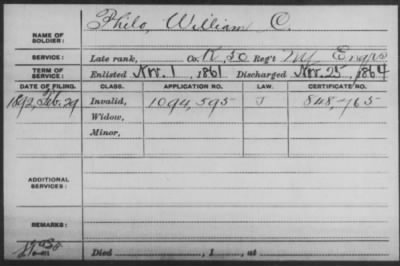 NAME OF SOLDIER: Philo, William C.
SERVICE: Late rank, Co. K, 50 Reg't N.Y. Engrs
TERM OF SERVICE: Enlisted Nov. 1, 1861. Discharged Nov. 25, 1864
DATE OF FILING. CLASS. APPLICATION NO. LAW. CERTIFICATE NO.
1892, Feb. 29 Invalid, 1094,595 J 848,765
Widow,
Minor,
ADDITIONAL SERVICES:
REMARKS:
Died , 1 , at